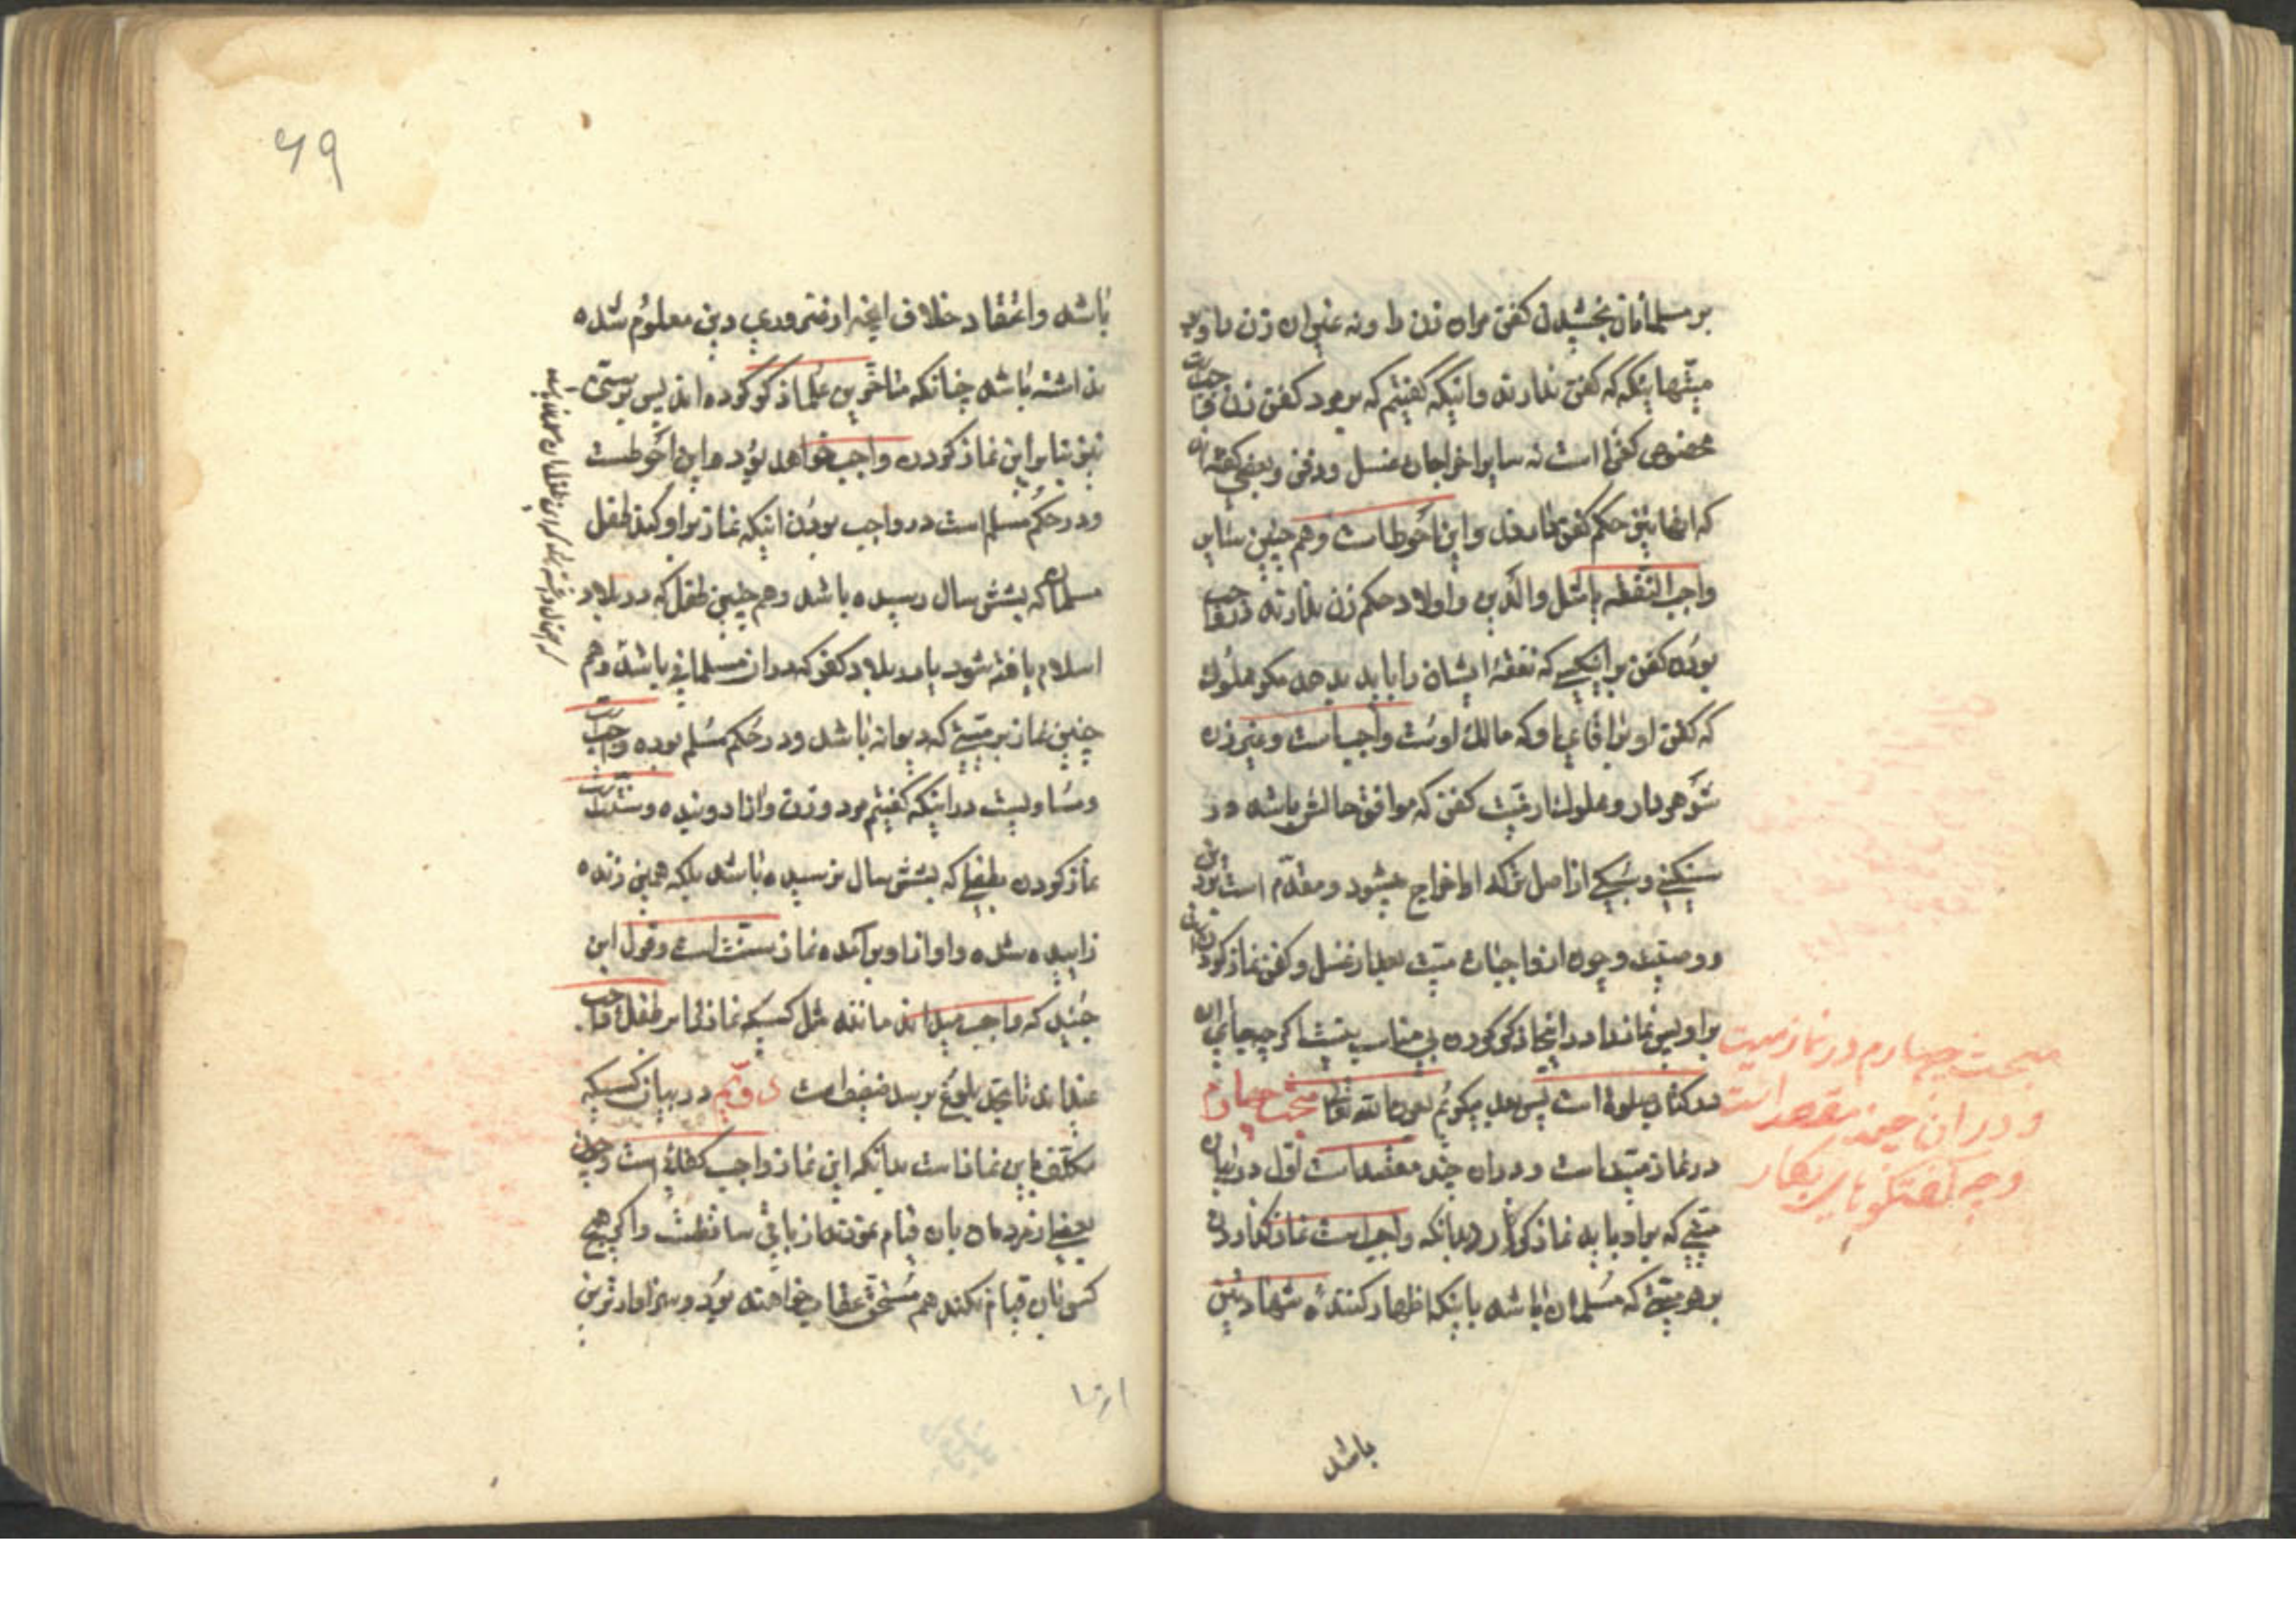 بر مسلمانان بخشیدن کفن مر ان زن را و نه غیر ان زن را از
میتهائیکه که کفن ندارند و انیکه گفتیم که بر مرد کفن زن واجبست
مخصوص کفن است نه سایر اخراجات غسل و دفن و بعضی گفته‌اند
که انها نیز حکم کفن دارند و این احوط است و هم چنین سایر
واجب النفقه باشد والدین و اولاد حکم زن ندارند در واجب
بودن کفن بر انکسی که نفقهٔ ایشان را باید بدهد مگر مملوک
که کفن او بر اقای او که مالک اوست واجبست و غیر زن
شوهردار و مملوک از میت کفن که موافق حالش باشد در
سنگینی و سبکی از اصل ترکه او اخراج میشود و مقدم است بر دین
و وصیت و چون از واجبات میت بعد از غسل و کفن نماز کردنست
بر او پس نماز را در اینجا ذکر کردن بی مناسب نیست اگر چه جای ان
در کتاب صلوة است پس بعد میگویم بعون الله تعالی مبحث چهارم
در نماز میت است و در ان چند مقصد است اول در بیان
میتی که بر او باید نماز کرد بدانکه واجب است نماز کذاردن
بر هر میتی که مسلمان باشد با اینکه اظهار کنندهٔ شهادتین
مبحث چهارم در نماز میت
و در ان چند مقصد است
باشد
۶۹
باشد و اعتقاد خلاف انچه از ضروری دین معلوم شده
نداشته باشد چنانکه متاخرین علما ذکر کرده اند پس بر سنی
نیز بنا بر این نماز کردن واجب خواهد بود و این احوطست
و در حکم مسلم است در واجب بودن اینکه نماز بر او کنند طفل
مسلمان که بشش سال رسیده باشد و هم چنین طفل که در بلاد
اسلام یافته شود یا در بلاد کفر که در ان مسلمانی باشد و هم
چنین نماز بر میتی که دیوانه باشد و در حکم مسلم بوده واجب است
و مساویست در اینکه گفتیم مرد و زن و ازاد و بنده و سنت است
نماز کردن بطفلی که بشش سال نرسیده باشد بلکه همین زنده
زاییده شده و اواز او برآمده نماز سنت است و قول ابن
جنید که واجب میداند مانند مثل کسیکه نماز را بر طفل واجب
نمیداند تا بحد بلوغ برسد ضعیف است دویم در بیان کسیکه
مکلف باین نماز است بدانکه این نماز واجب کفائی است و چون
بعضی از مردمان بان قیام نمودند از باقی ساقطست و اگر هیچ
کس بان قیام نکند هم مستحق عقاب خواهند بود و سزاوارترین